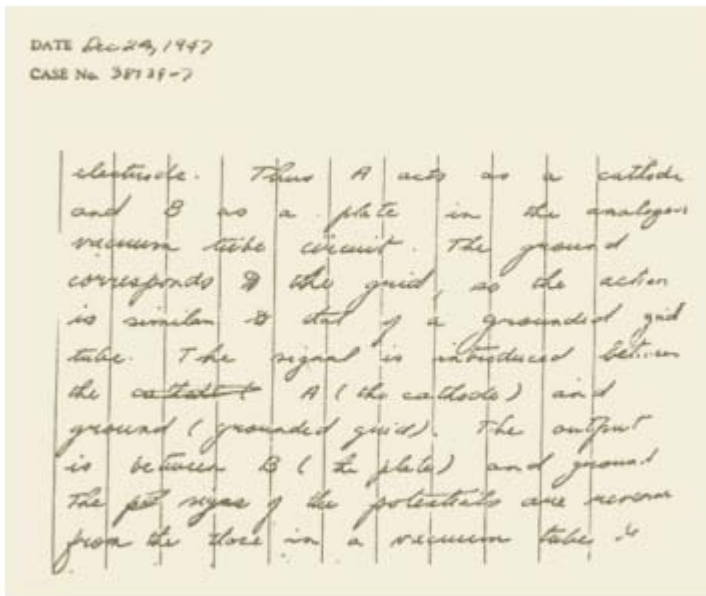 DATE Dec 24, 1947
CASE No. 38139-7
electrode. Thus A acts as a cathode
and B as a plate in the analogous
vacuum tube circuit. The ground
corresponds to the grid, so the action
is similar to that of a grounded grid
tube. The signal is introduced between
the cathode ( A (the cathode) and
ground (grounded grid). The output
is between B (the plate) and ground
The pot signs of the potentials are reverse
from the those in a vacuum tube